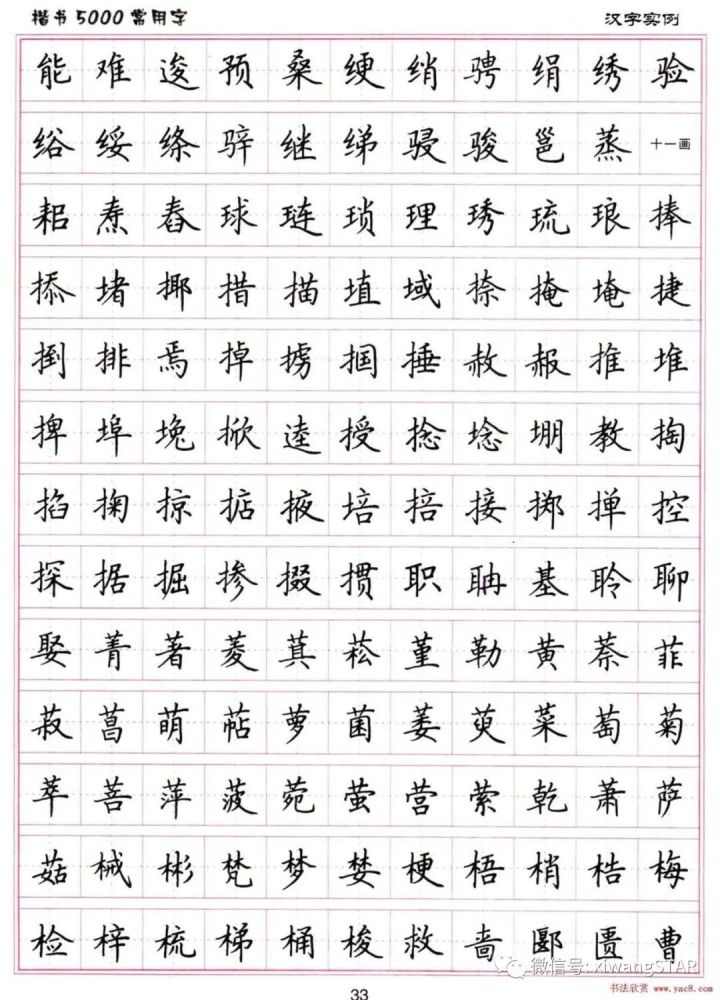 楷书5000常用字 汉字实例
能难逡预桑绠绡骋绢绣验
绤绥绦骍继绨骎骏邕蒸十一画
耜焘舂球琏琐理琇琉琅捧
掭堵揶措描埴域捺掩埯捷
捯排焉掉掳掴捶赦赧推堆
捭埠堍掀逵授捻埝堋教掏
掐掬掠掂掖培掊接掷掸控
探据掘掺掇掼职聃基聆聊
娶菁著菱萁菘堇勒黄萘菲
菽菖萌萜萝菌萎萸菜萄菊
萃菩萍菠菀萤营萦乾萧萨
菇械彬梵梦婪梗梧梢梏梅
检梓梳梯桶梭救啬郾匮曹
微信号: xiwangSTAR
33
书法欣赏 www.yac8.com